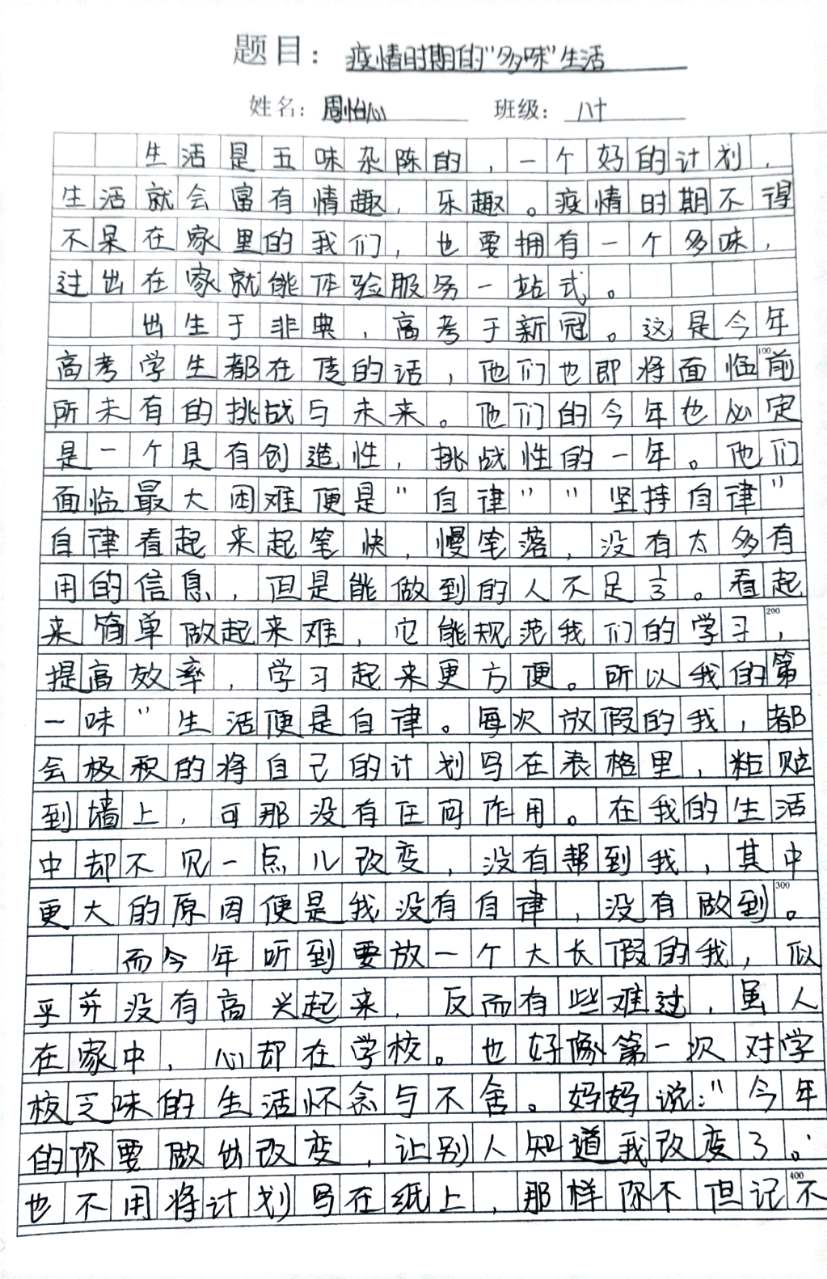 题目：疫情时期的"多味"生活
姓名：周怡心 班级：八十
生活是五味杂陈的，一个好的计划，
生活就会富有情趣，乐趣。疫情时期不得
不呆在家里的我们，也要拥有一个多味，
过出在家就能体验服务一站式。
出生于非典，高考于新冠。这是今年
高考学生都在传的话，他们也即将面临前
100
所未有的挑战与未来。他们的今年也必定
是一个具有创造性，挑战性的一年。他们
面临最大困难便是"自律""坚持自律"
自律看起来起笔快，慢笔落，没有太多有
用的信息，但是能做到的人不足⅓。看起
来简单做起来难，它能规范我们的学习，
200
提高效率，学习起来更方便。所以我的第
一味"生活便是自律。每次放假的我，都
会极积的将自己的计划写在表格里，粘贴
到墙上，可那没有任何作用。在我的生活
中却不见一点儿改变，没有帮到我，其中
更大的原因便是我没有自律，没有做到。
300
而今年听到要放一个大长假的我，似
乎并没有高兴起来，反而有些难过，虽人
在家中，心却在学校。也好像第一次对学
校乏味的生活怀念与不舍。妈妈说："今年
的你要做出改变，让别人知道我改变了。
也不用将计划写在纸上，那样你不但记不
400